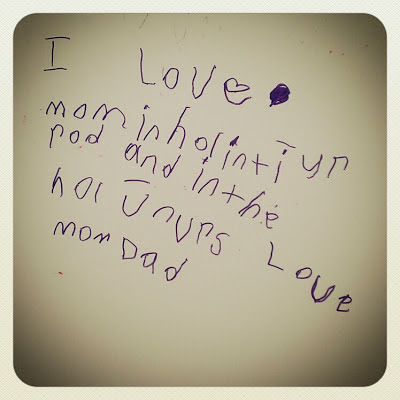 I Love
mom in hol intiyr
pod and in the
hol Unvrs Love
mom Dad